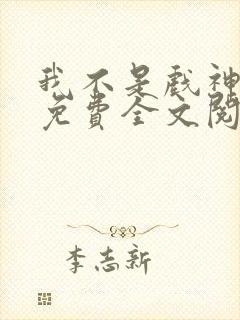 我不是戲神
免費全文閱
李志新